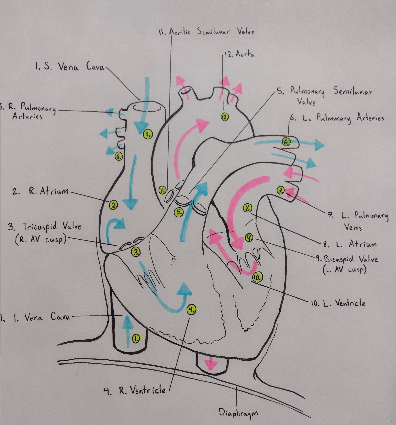 11. Aortic Semilunar Valve
12. Aorta
1. S. Vena Cava
5. Pulmonary Semilunar
Valve
6. R. Pulmonary
Arteries
6. L. Pulmonary Arteries
2. R. Atrium
3. Tricuspid Valve
(R. AV cusp)
7. L. Pulmonary
Veins
8. L. Atrium
9. Bicuspid Valve
(L. AV cusp)
10. L. Ventricle
1. I. Vena Cava
4. R. Ventricle
Diaphragm